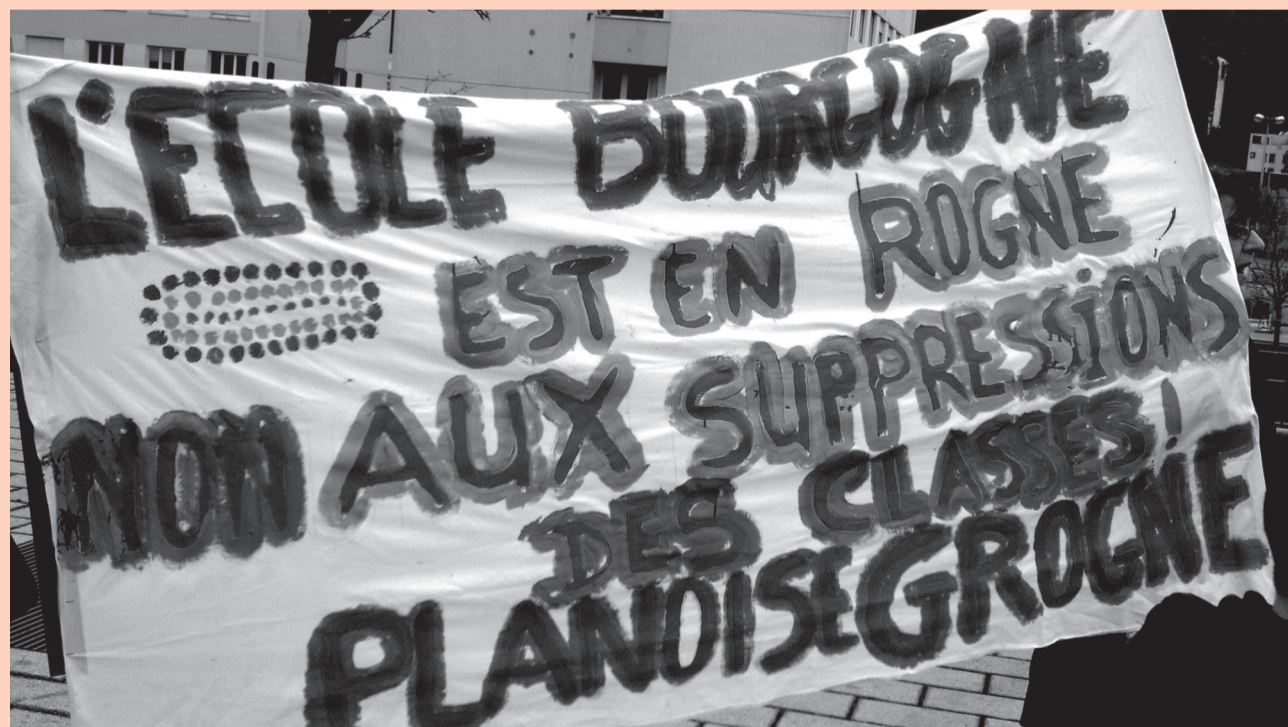 L'ECOLE BOURGOGNE
EST EN ROGNE
NON AUX SUPPRESSIONS
DES CLASSES !
PLANOISE GROGNE